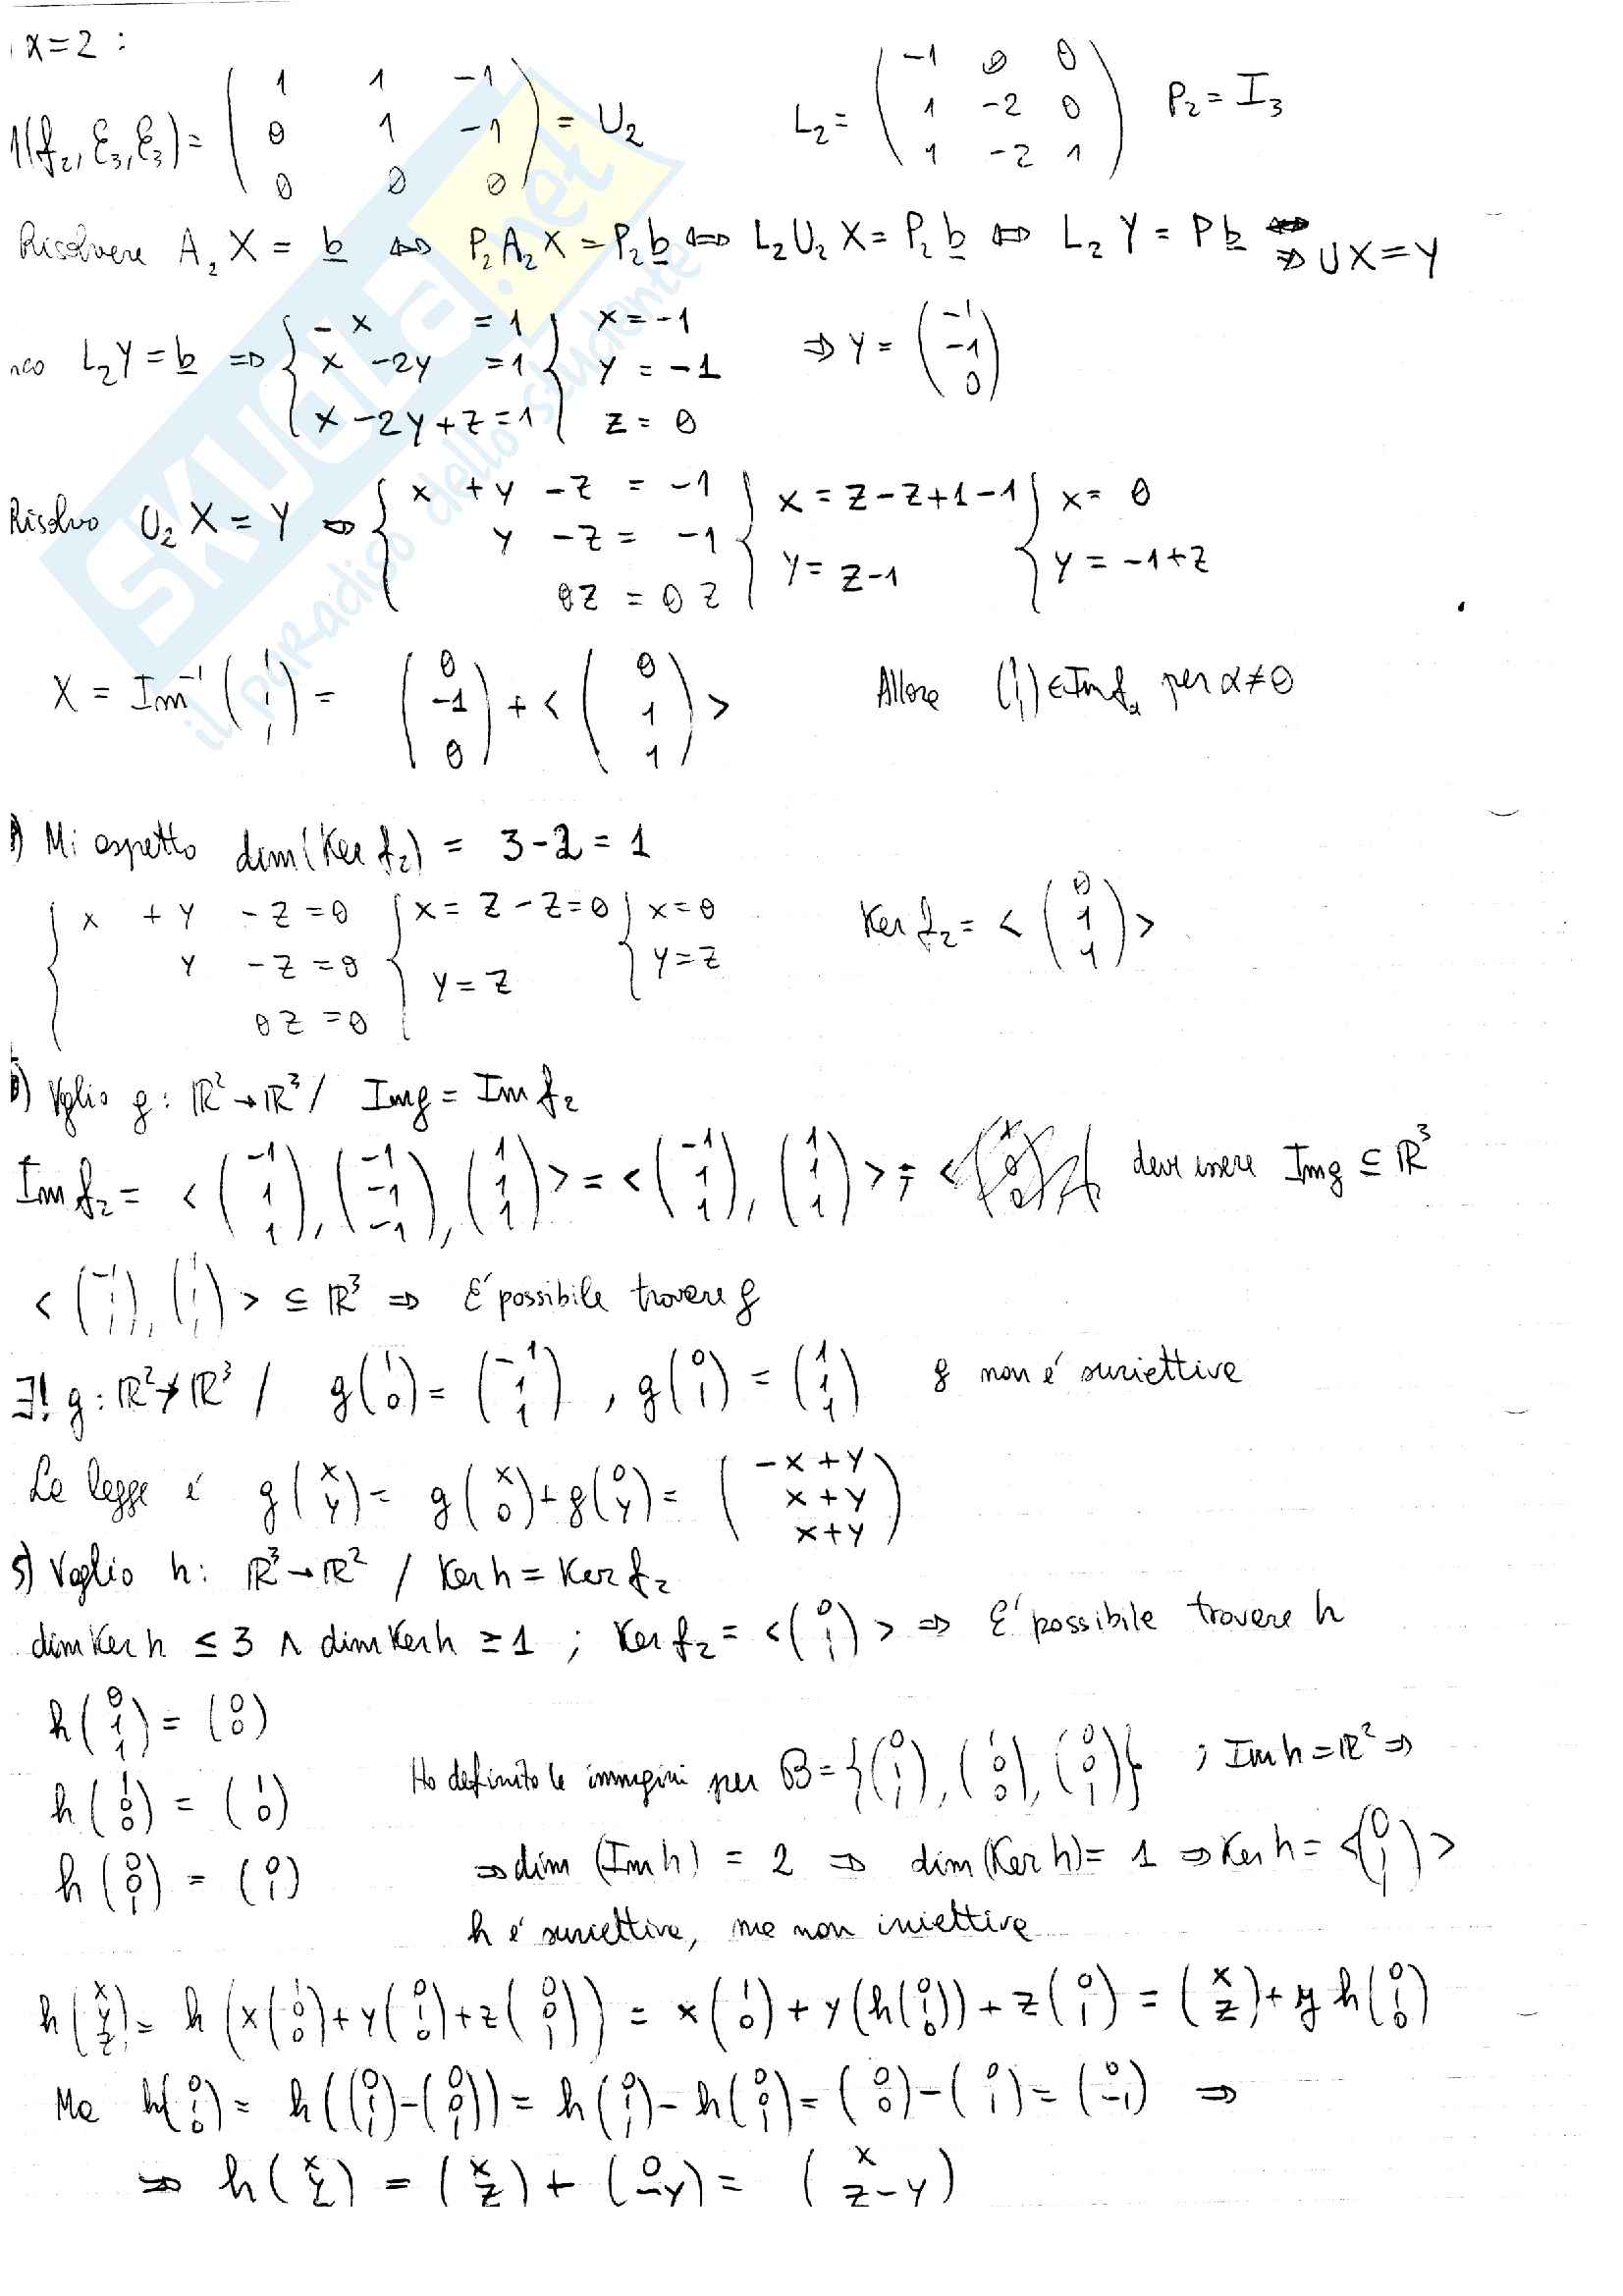 x=2 :
(f₂, ℰ₃, ℰ₃) = ( 1 1 -1 ; 0 1 -1 ; 0 0 0 ) = U₂ L₂ = ( -1 0 0 ; 1 -2 0 ; 1 -2 1 ) P₂ = I₃
Risolvere A₂ X = b ⇔ P₂A₂X = P₂b ⇔ L₂U₂X = P₂b ⇔ L₂Y = Pb ⇒ UX = Y
L₂Y = b ⇒ { -x = 1 ; x -2y = 1 ; x -2y + z = 1 { x = -1 ; y = -1 ; z = 0 ⇒ Y = ( -1 ; -1 ; 0 )
Risolvo U₂ X = Y ⇒ { x + y - z = -1 ; y - z = -1 ; 0z = 0 z { x = z - z + 1 - 1 ; y = z - 1 { x = 0 ; y = -1 + z
X = Im⁻¹ ( 1 ; 1 ; 1 ) = ( 0 ; -1 ; 0 ) + < ( 0 ; 1 ; 1 ) > Allora ( 1 ; 1 ; 1 ) ∈ Im f_α per α ≠ 0
) Mi aspetto dim(Ker f₂) = 3 - 2 = 1
{ x + y - z = 0 ; y - z = 0 ; 0z = 0 { x = z - z = 0 ; y = z { x = 0 ; y = z Ker f₂ = < ( 0 ; 1 ; 1 ) >
) Voglio g : ℝ² → ℝ³ / Im g = Im f₂
Im f₂ = < ( -1 ; 1 ; 1 ), ( -1 ; -1 ; -1 ), ( 1 ; 1 ; 1 ) > = < ( -1 ; 1 ; 1 ), ( 1 ; 1 ; 1 ) > ; deve essere Im g ⊆ ℝ³
< ( -1 ; 1 ; 1 ), ( 1 ; 1 ; 1 ) > ⊆ ℝ³ ⇒ É possibile trovare g
∃! g : ℝ² → ℝ³ / g( 1 ; 0 ) = ( -1 ; 1 ; 1 ) , g( 0 ; 1 ) = ( 1 ; 1 ; 1 ) g non é suriettiva
La legge é g( x ; y ) = g( x ; 0 ) + g( 0 ; y ) = ( -x + y ; x + y ; x + y )
5) Voglio h : ℝ³ → ℝ² / Ker h = Ker f₂
dim Ker h ≤ 3 ∧ dim Ker h ≥ 1 ; Ker f₂ = < ( 0 ; 1 ; 1 ) > ⇒ É possibile trovare h
h( 0 ; 1 ; 1 ) = ( 0 ; 0 )
Ho definito le immagini per B = { ( 0 ; 1 ; 1 ), ( 1 ; 0 ; 0 ), ( 0 ; 0 ; 1 ) } ; Im h = ℝ² ⇒
h( 1 ; 0 ; 0 ) = ( 1 ; 0 )
h( 0 ; 0 ; 1 ) = ( 0 ; 1 ) ⇒ dim (Im h) = 2 ⇒ dim(Ker h) = 1 ⇒ Ker h = < ( 0 ; 1 ; 1 ) >
h é suriettiva, ma non iniettiva
h( x ; y ; z ) = h( x( 1 ; 0 ; 0 ) + y( 0 ; 1 ; 0 ) + z( 0 ; 0 ; 1 ) ) = x( 1 ; 0 ) + y( h( 0 ; 1 ; 0 ) ) + z( 0 ; 1 ) = ( x ; z ) + y h( 0 ; 1 ; 0 )
Ma h( 0 ; 1 ; 0 ) = h( ( 0 ; 1 ; 1 ) - ( 0 ; 0 ; 1 ) ) = h( 0 ; 1 ; 1 ) - h( 0 ; 0 ; 1 ) = ( 0 ; 0 ) - ( 0 ; 1 ) = ( 0 ; -1 ) ⇒
⇒ h( x ; y ; z ) = ( x ; z ) + ( 0 ; -y ) = ( x ; z - y )
SKUOLA.net
il paradiso dello studente